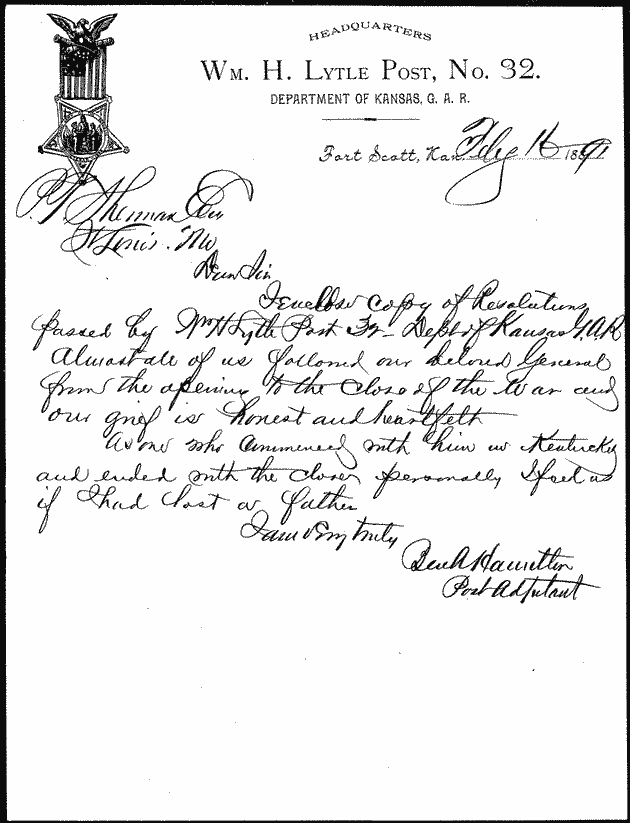 HEADQUARTERS
WM. H. LYTLE POST, NO. 32.
DEPARTMENT OF KANSAS, G. A. R.
Fort Scott, Kan. Feby 16 1891
P. T. Sherman Esq
St Louis. Mo
Dear Sir
I enclose copy of Resolutions
passed by Wm H Lytle Post 32 Dept of Kansas G.A.R
Almost all of us followed our beloved General
from the opening to the close of the War and
our grief is honest and heartfelt
As one who commenced with him in Kentucky
and ended with the close, personally I feel as
if I had lost a father
I am very truly
Ben A Hamilton
Post Adjutant